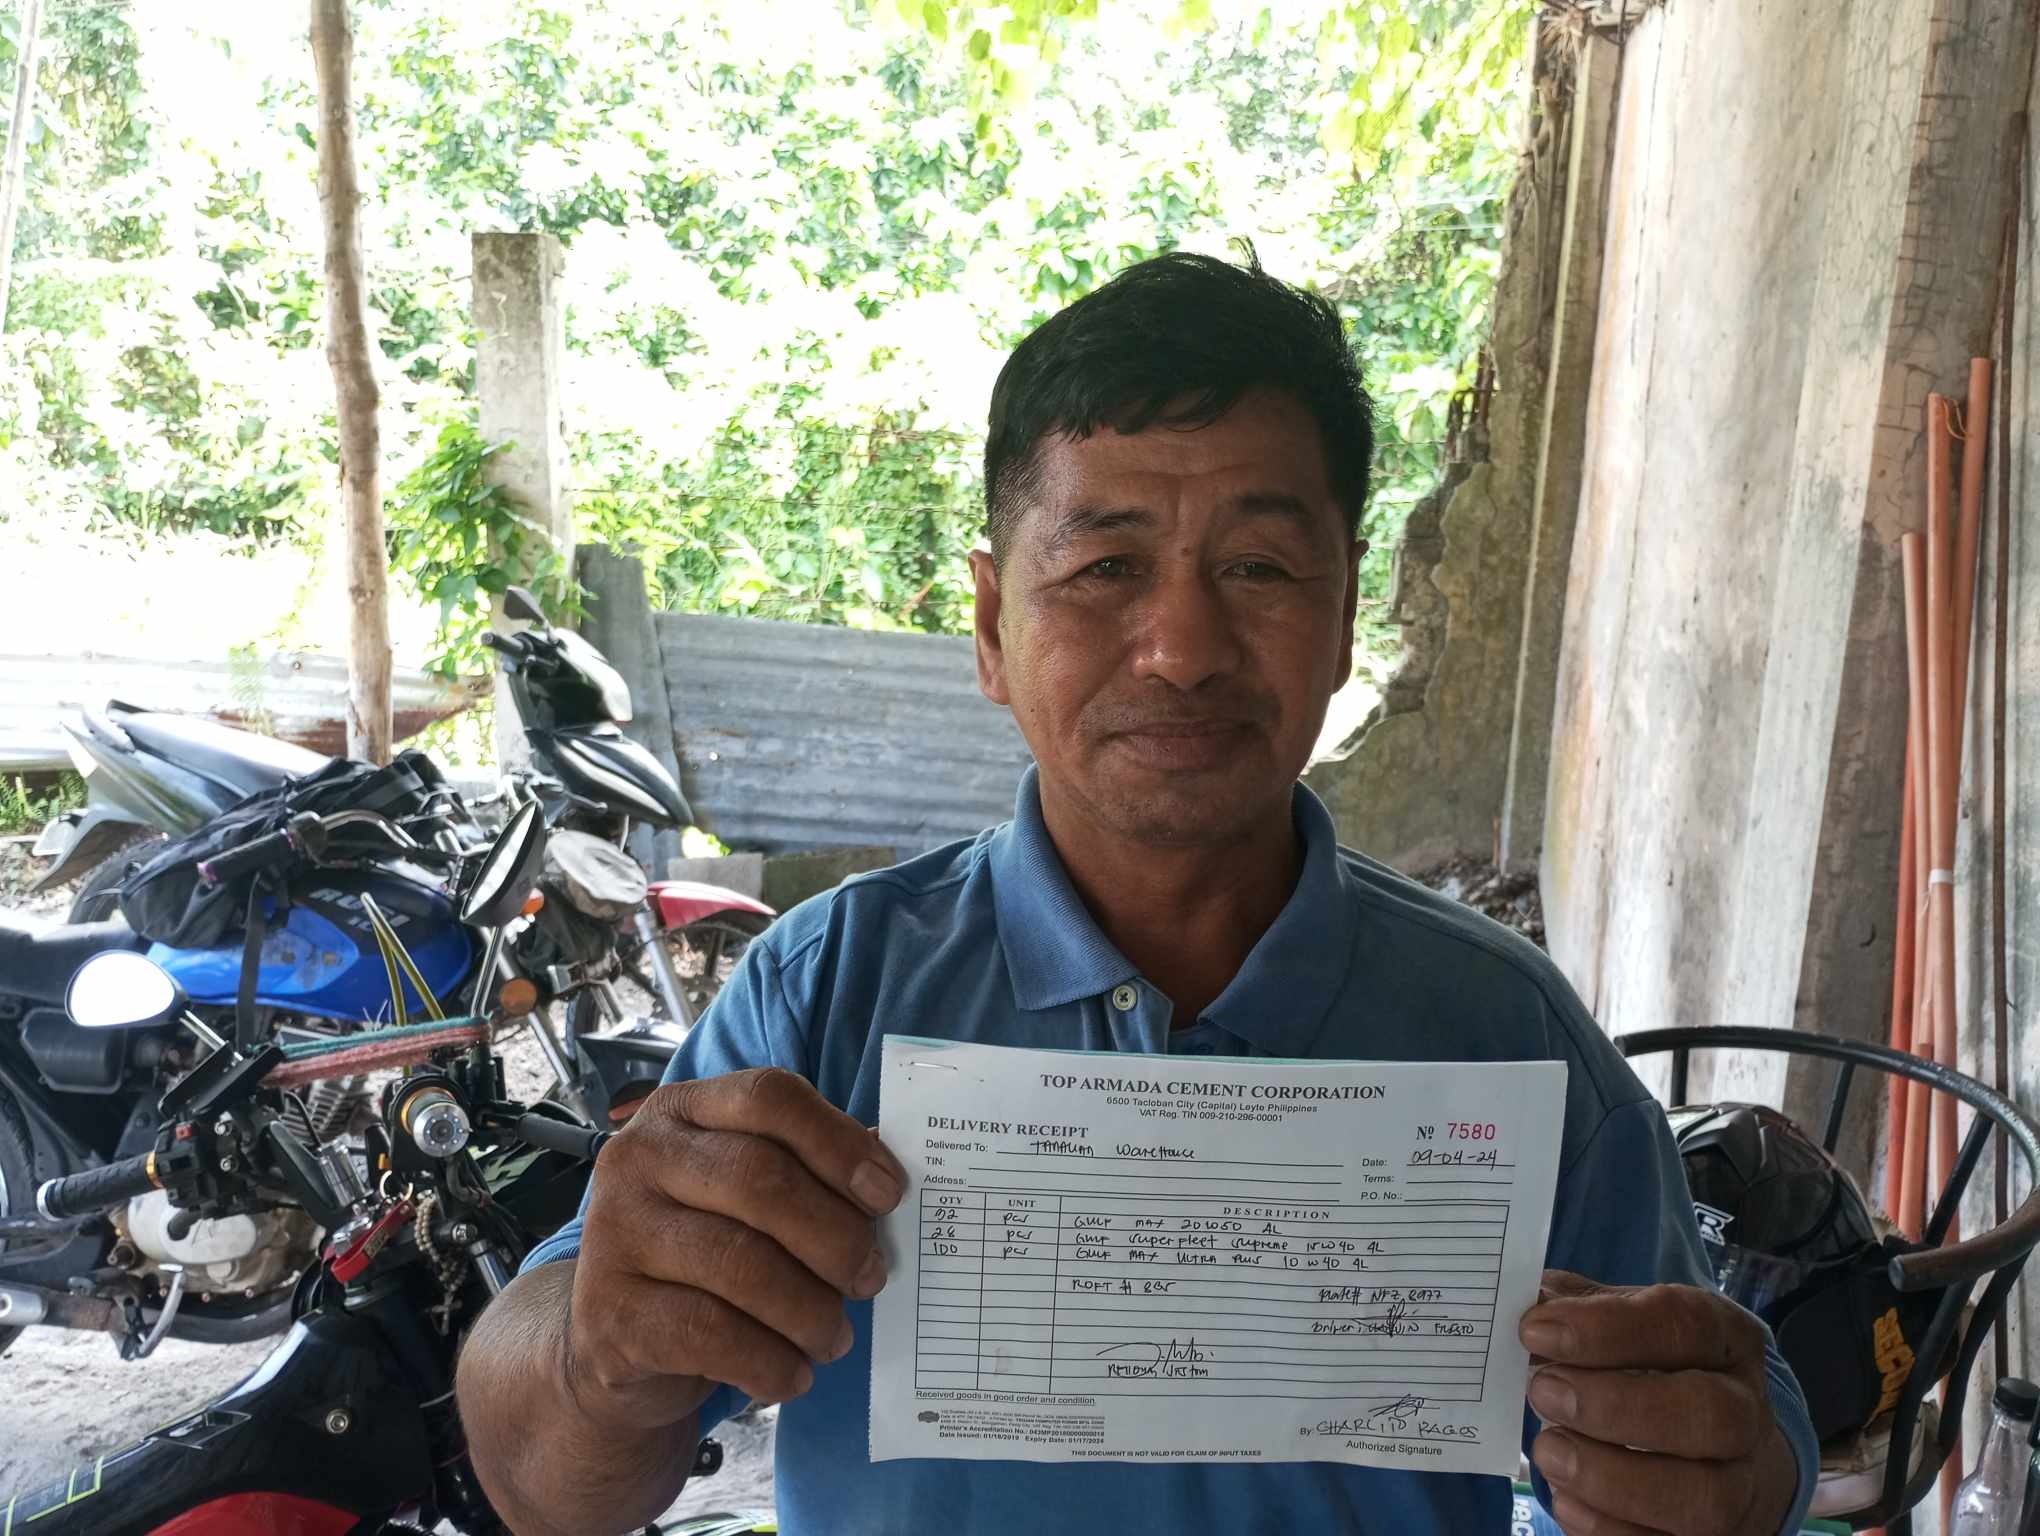 TOP ARMADA CEMENT CORPORATION
6500 Tacloban City (Capital) Leyte Philippines
VAT Reg. TIN 009-210-296-00001
DELIVERY RECEIPT
Nº 7580
Delivered To: TANAUAN WareHouse
Date: 09-04-24
TIN:
Terms:
Address:
P.O. No.:
QTY UNIT DESCRIPTION
32 pcs GULF MAX 20W50 4L
28 pcs GULF Superfleet Supreme 15W40 4L
100 pcs GULF MAX ULTRA PLUS 10W40 4L
Plate# NFZ 8977
Driver:
Received goods in good order and condition.
Printer's Accreditation No.:
Date Issued: 01/18/2019 Expiry Date: 01/17/2024
By: CHARLITO RAGOS
Authorized Signature
THIS DOCUMENT IS NOT VALID FOR CLAIM OF INPUT TAXES
SECON
rec